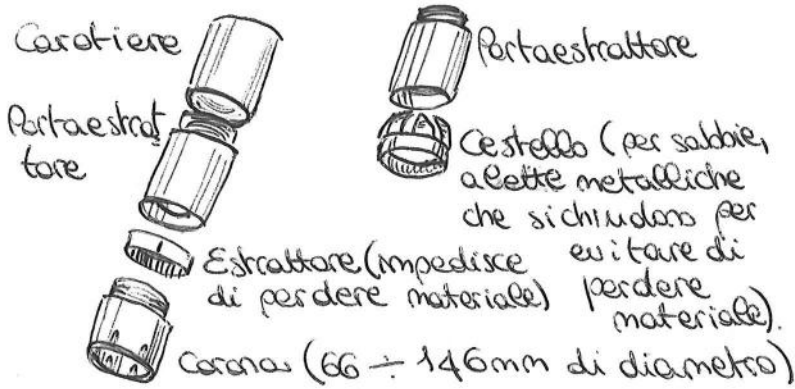 Carotiere
Portaestrat
tore
Estrattore (impedisce
di perdere materiale)
Corona (66 ÷ 146mm di diametro)
Portaestrattore
Cestello (per sabbie,
alette metalliche
che si chiudono per
evitare di
perdere
materiale).